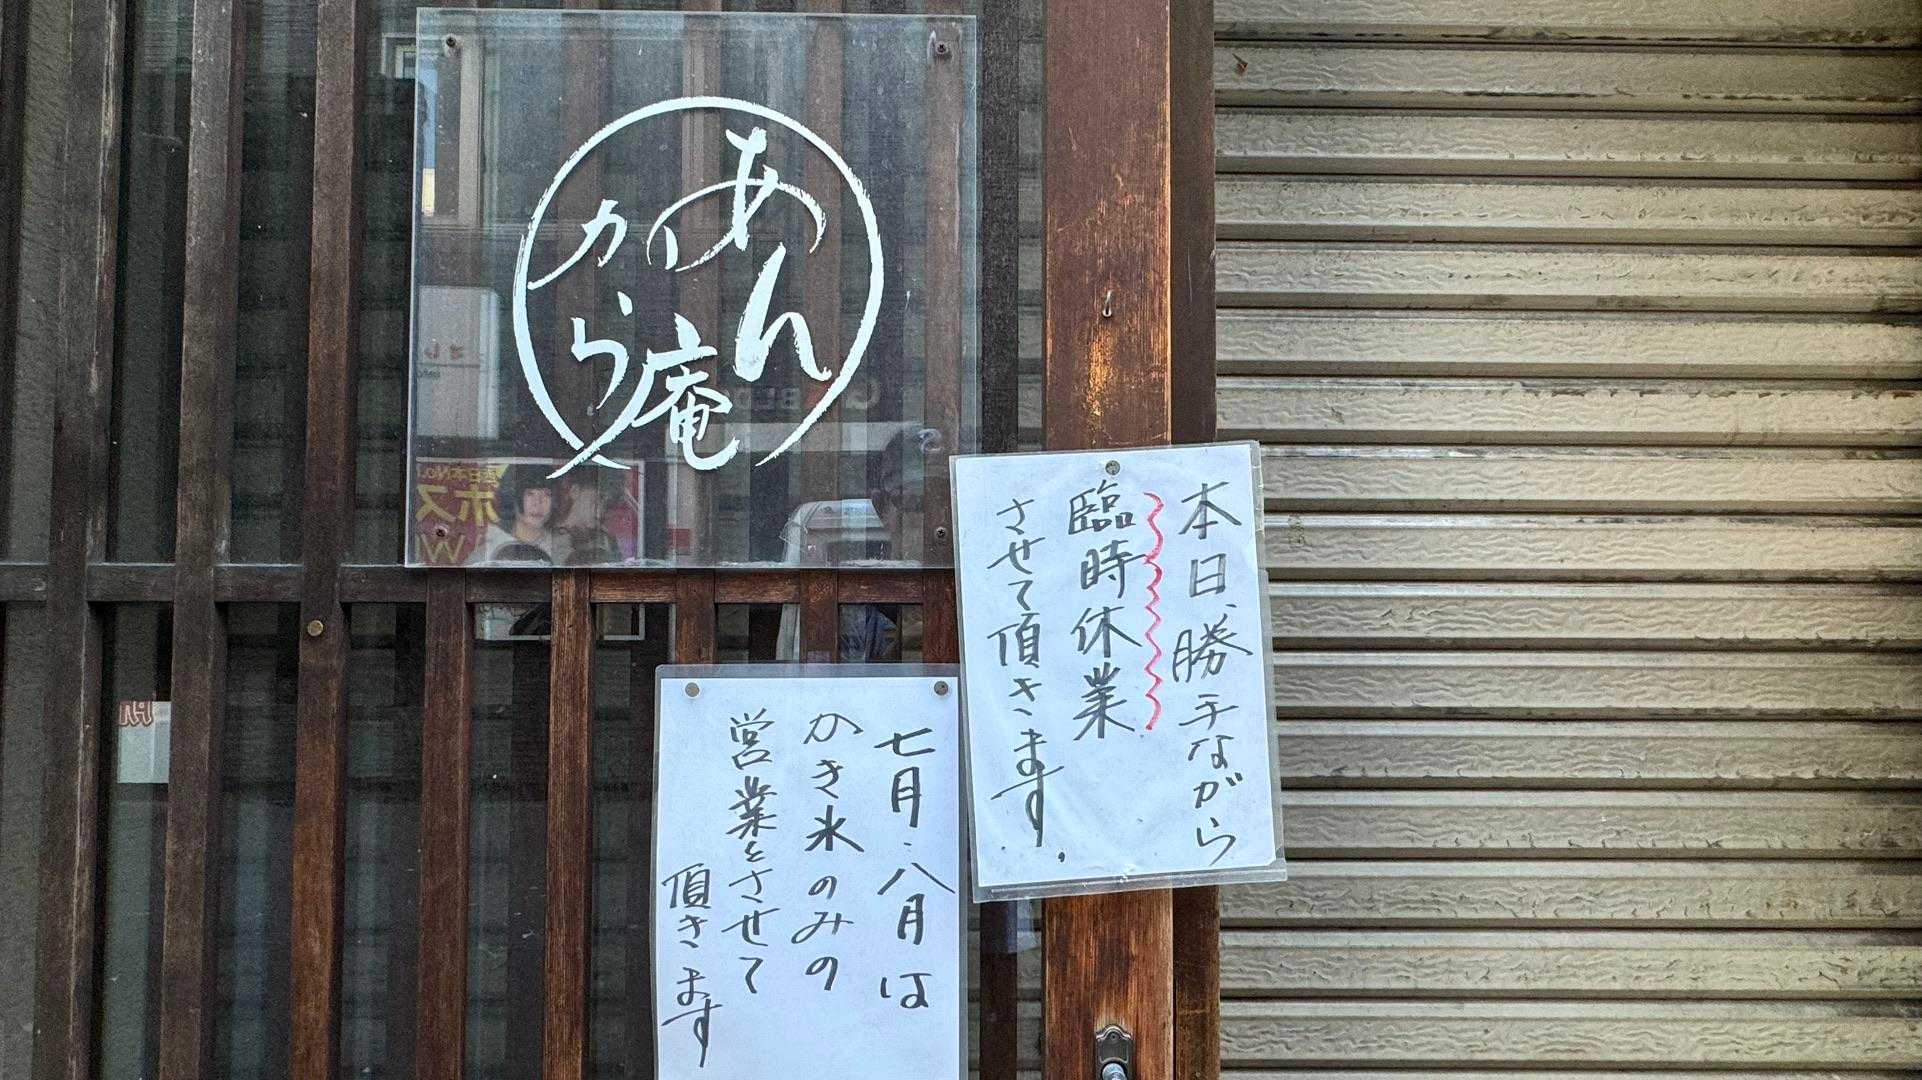 あん
庵
から
本日、勝手ながら
臨時休業
させて頂きます。
七月・八月は
かき氷のみの
営業とさせて
頂きます